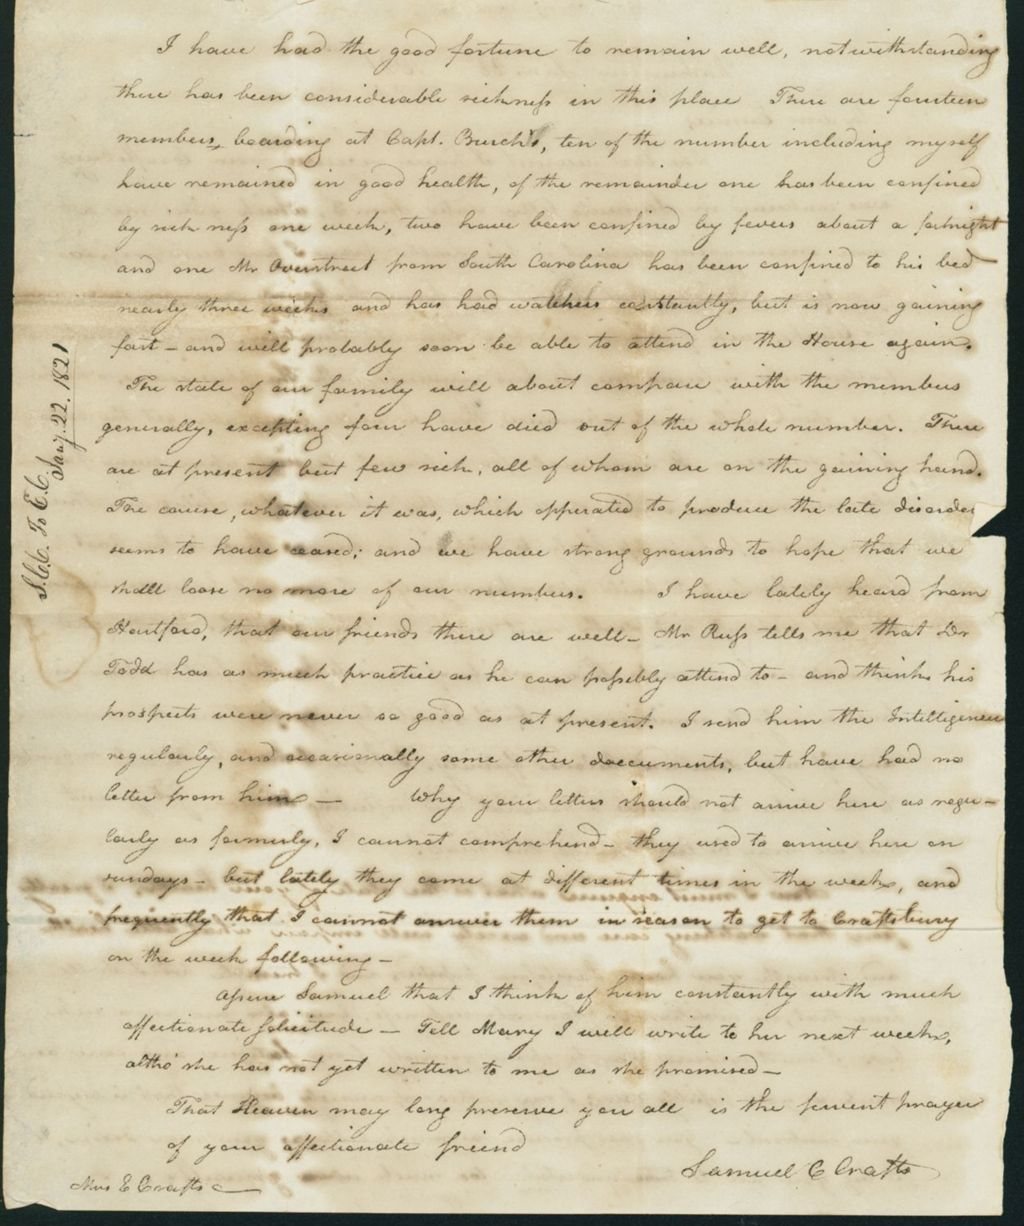 I have had the good fortune to remain well, notwithstanding
there has been considerable sickness in this place There are fourteen
members, boarding at Capt. Burch's, ten of the number including myself
have remained in good health, of the remainder one has been confined
by sickness one week, two have been confined by fevers about a fortnight
and one Mr Overstreet from South Carolina has been confined to his bed
nearly three weeks and has had watchers constantly, but is now gaining
fast – and will probably soon be able to attend in the House again.
The state of our family will about compare with the members
generally, excepting four have died out of the whole number. There
are at present but few sick, all of whom are on the gaining hand.
The cause, whatever it was, which opperated to produce the late disorder
seems to have ceased; and we have strong grounds to hope that we
shall loose no more of our numbers. I have lately heard from
Hartford, that our friends there are well – Mr Russ tells me that Dr
Todd has as much practice as he can possibly attend to – and thinks his
prospects were never so good as at present. I send him the Intelligencer
regularly, and occasionally some other doccuments, but have had no
letter from him – Why your letters should not arrive here as regu-
larly as formerly, I cannot comprehend – they used to arrive here on
sundays – but lately they come at different times in the week, and
frequently that I cannot answer them in season to get to Craftsbury
on the week following –
Assure Samuel that I think of him constantly with much
affectionate solicitude – Tell Mary I will write to her next week,
altho' she has not yet written to me as she promised –
That Heaven may long preserve you all is the fervent prayer
of your affectionate friend
Samuel C Crafts
Mrs E Crafts
S.C.C. To E.C.
Jany. 22. 1821